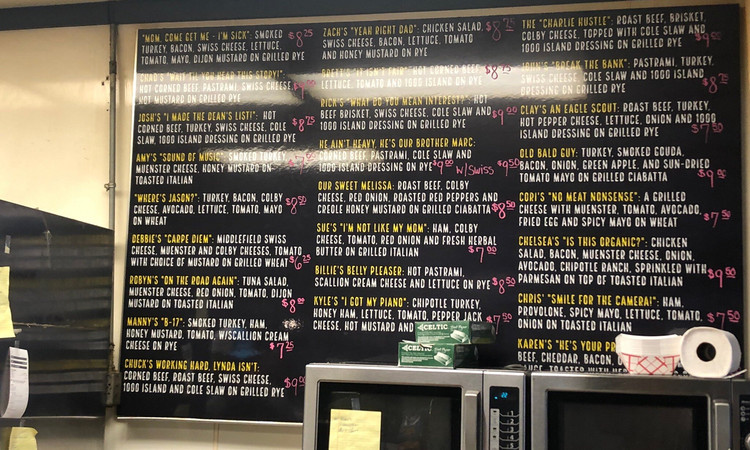 "MOM, COME GET ME - I'M SICK": SMOKED $8.25
TURKEY, BACON, SWISS CHEESE, LETTUCE,
TOMATO, MAYO, DIJON MUSTARD ON GRILLED RYE
CHAD'S "WAIT TIL YOU HEAR THIS STORY!":
HOT CORNED BEEF, PASTRAMI, SWISS CHEESE,
HOT MUSTARD ON GRILLED RYE
JOSH'S "I MADE THE DEAN'S LIST!": HOT
CORNED BEEF, TURKEY, SWISS CHEESE, COLE $8.25
SLAW, 1000 ISLAND DRESSING ON GRILLED RYE
AMY'S "SOUND OF MUSIC": SMOKED TURKEY,
MUENSTER CHEESE, HONEY MUSTARD ON
TOASTED ITALIAN
"WHERE'S JASON?": TURKEY, BACON, COLBY
CHEESE, AVOCADO, LETTUCE, TOMATO, MAYO $8.50
ON WHEAT
DEBBIE'S "CARPE DIEM": MIDDLEFIELD SWISS
CHEESE, MUENSTER AND COLBY CHEESES, TOMATO
WITH CHOICE OF MUSTARD ON GRILLED WHEAT $6.25
ROBYN'S "ON THE ROAD AGAIN": TUNA SALAD,
MUENSTER CHEESE, RED ONION, TOMATO, DIJON
MUSTARD ON TOASTED ITALIAN $8.00
MANNY'S "B-17": SMOKED TURKEY, HAM,
HONEY MUSTARD, TOMATO, W/SCALLION CREAM
CHEESE ON RYE $7.25
CHUCK'S WORKING HARD, LYNDA ISN'T:
CORNED BEEF, ROAST BEEF, SWISS CHEESE, $9.00
1000 ISLAND AND COLE SLAW ON GRILLED RYE
ZACH'S "YEAH RIGHT DAD": CHICKEN SALAD, $8.25
SWISS CHEESE, BACON, LETTUCE, TOMATO
AND HONEY MUSTARD ON RYE
BRETT'S "IT ISN'T FAIR": HOT CORNED BEEF, $8.75
LETTUCE, TOMATO AND 1000 ISLAND ON RYE
RICK'S "WHAT DO YOU MEAN INTEREST?": HOT
BEEF BRISKET, SWISS CHEESE, COLE SLAW AND $9.00
1000 ISLAND DRESSING ON GRILLED RYE
HE AIN'T HEAVY, HE'S OUR BROTHER MARC:
CORNED BEEF, PASTRAMI, COLE SLAW AND
1000 ISLAND DRESSING ON RYE $9.00 W/SWISS $9.50
OUR SWEET MELISSA: ROAST BEEF, COLBY
CHEESE, RED ONION, ROASTED RED PEPPERS AND
CREOLE HONEY MUSTARD ON GRILLED CIABATTA $8.50
SUE'S "I'M NOT LIKE MY MOM": HAM, COLBY
CHEESE, TOMATO, RED ONION AND FRESH HERBAL
BUTTER ON GRILLED ITALIAN $7.00
BILLIE'S BELLY PLEASER: HOT PASTRAMI,
SCALLION CREAM CHEESE AND LETTUCE ON RYE $8.50
KYLE'S "I GOT MY PIANO": CHIPOTLE TURKEY,
HONEY HAM, LETTUCE, TOMATO, PEPPER JACK
CHEESE, HOT MUSTARD AND $7.50
THE "CHARLIE HUSTLE": ROAST BEEF, BRISKET,
COLBY CHEESE, TOPPED WITH COLE SLAW AND
1000 ISLAND DRESSING ON GRILLED RYE $9.00
JOHN'S "BREAK THE BANK": PASTRAMI, TURKEY,
SWISS CHEESE, COLE SLAW AND 1000 ISLAND
DRESSING ON GRILLED RYE $8.75
CLAY'S AN EAGLE SCOUT: ROAST BEEF, TURKEY,
HOT PEPPER CHEESE, LETTUCE, ONION AND 1000
ISLAND DRESSING ON GRILLED RYE $7.50
OLD BALD GUY: TURKEY, SMOKED GOUDA,
BACON, ONION, GREEN APPLE, AND SUN-DRIED
TOMATO MAYO ON GRILLED CIABATTA $9.00
CORI'S "NO MEAT NONSENSE": A GRILLED
CHEESE WITH MUENSTER, TOMATO, AVOCADO,
FRIED EGG AND SPICY MAYO ON WHEAT $7.50
CHELSEA'S "IS THIS ORGANIC?": CHICKEN
SALAD, BACON, MUENSTER CHEESE, ONION,
AVOCADO, CHIPOTLE RANCH, SPRINKLED WITH $9.50
PARMESAN ON TOP OF TOASTED ITALIAN
CHRIS' "SMILE FOR THE CAMERA!": HAM,
PROVOLONE, SPICY MAYO, LETTUCE, TOMATO,
ONION ON TOASTED ITALIAN $7.50
KAREN'S "HE'S YOUR
BEEF, CHEDDAR, BACON,
CELTIC
CELTIC